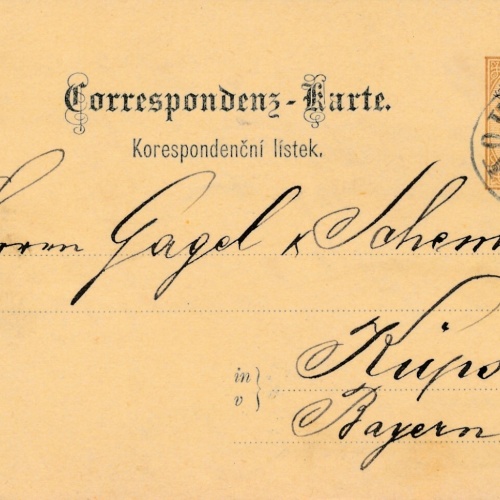 Correspondenz-Karte.
Korespondenční lístek.
Gagel & Schem
in
v
Küps
Bayern